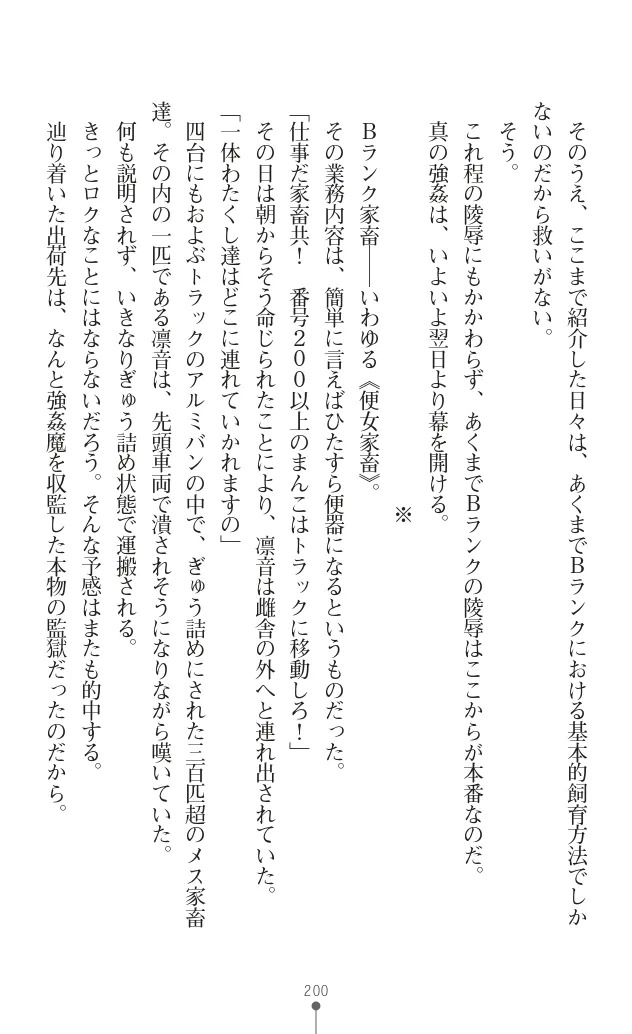 そのうえ、ここまで紹介した日々は、あくまでＢランクにおける基本的飼育方法でしか
ないのだから救いがない。
そう。
これ程の陵辱にもかかわらず、あくまでＢランクの陵辱はここからが本番なのだ。
真の強姦は、いよいよ翌日より幕を開ける。
※
Ｂランク家畜――いわゆる《便女家畜》。
その業務内容は、簡単に言えばひたすら便器になるというものだった。
「仕事だ家畜共！　番号２００以上のまんこはトラックに移動しろ！」
その日は朝からそう命じられたことにより、凛音は雌舎の外へと連れ出されていた。
「一体わたくし達はどこに連れていかれますの」
四台にもおよぶトラックのアルミバンの中で、ぎゅう詰めにされた三百匹超のメス家畜
達。その内の一匹である凛音は、先頭車両で潰されそうになりながら嘆いていた。
何も説明されず、いきなりぎゅう詰め状態で運搬される。
きっとロクなことにはならないだろう。そんな予感はまたも的中する。
辿り着いた出荷先は、なんと強姦魔を収監した本物の監獄だったのだから。
200